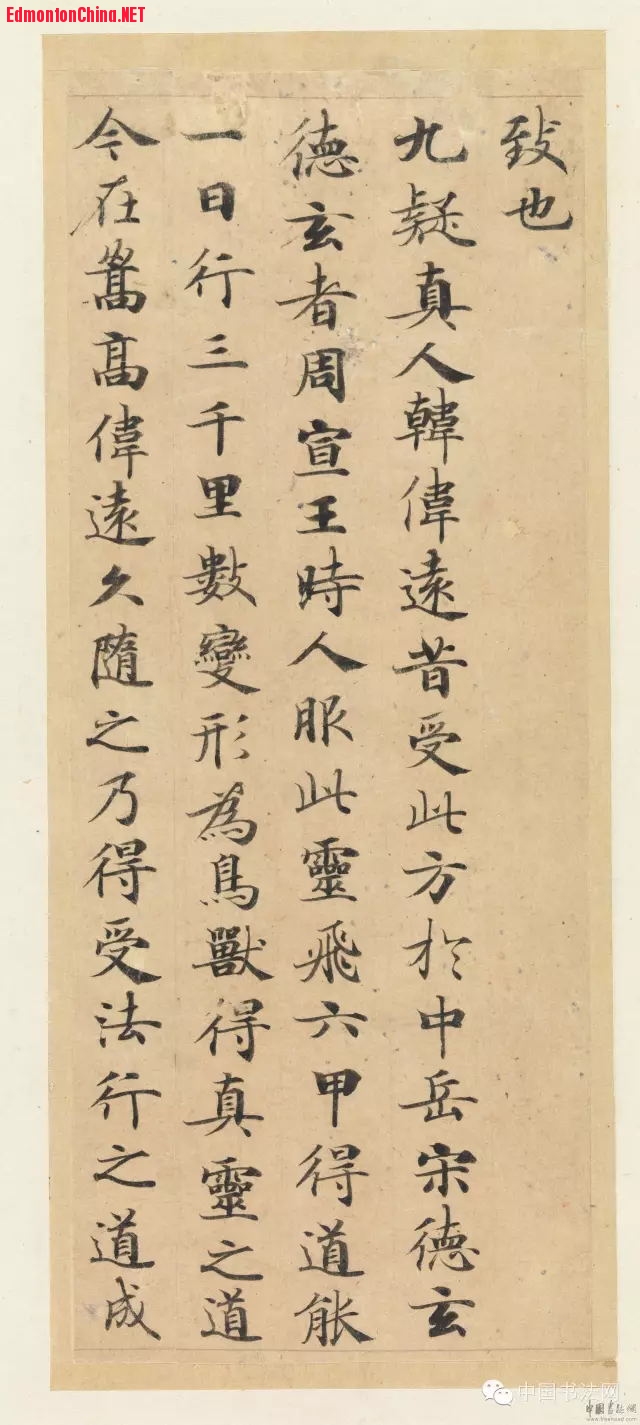 EdmontonChina.NET
致也
九疑真人韓偉遠昔受此方於中岳宋德玄
德玄者周宣王時人服此靈飛六甲得道能
一日行三千里數變形為鳥獸得真靈之道
今在嵩高偉遠久隨之乃得受法行之道成
中国书法网